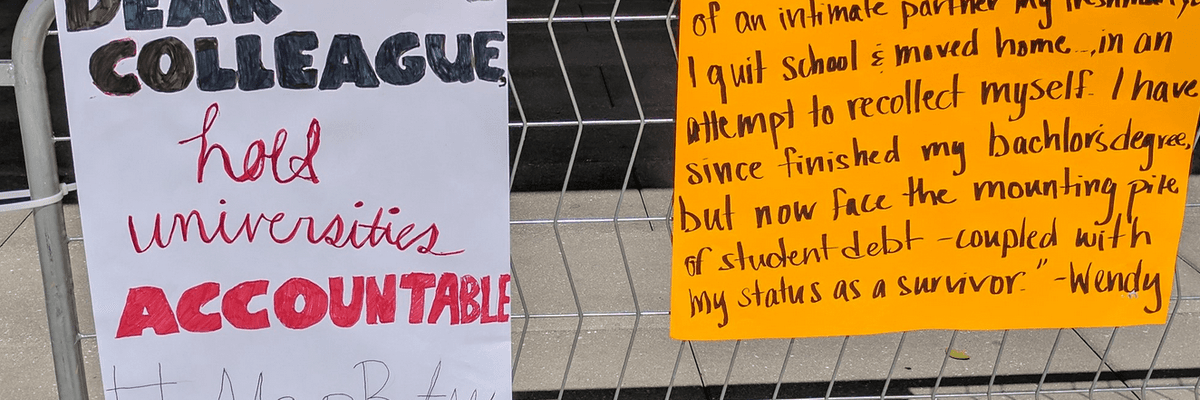 DEAR
COLLEAGUE,
hold
universities
ACCOUNTABLE
of an intimate partner my freshman
I quit school & moved home...in an
attempt to recollect myself. I have
since finished my bachlor's degree,
but now face the mounting pile
of student debt - coupled with
my status as a survivor." - Wendy